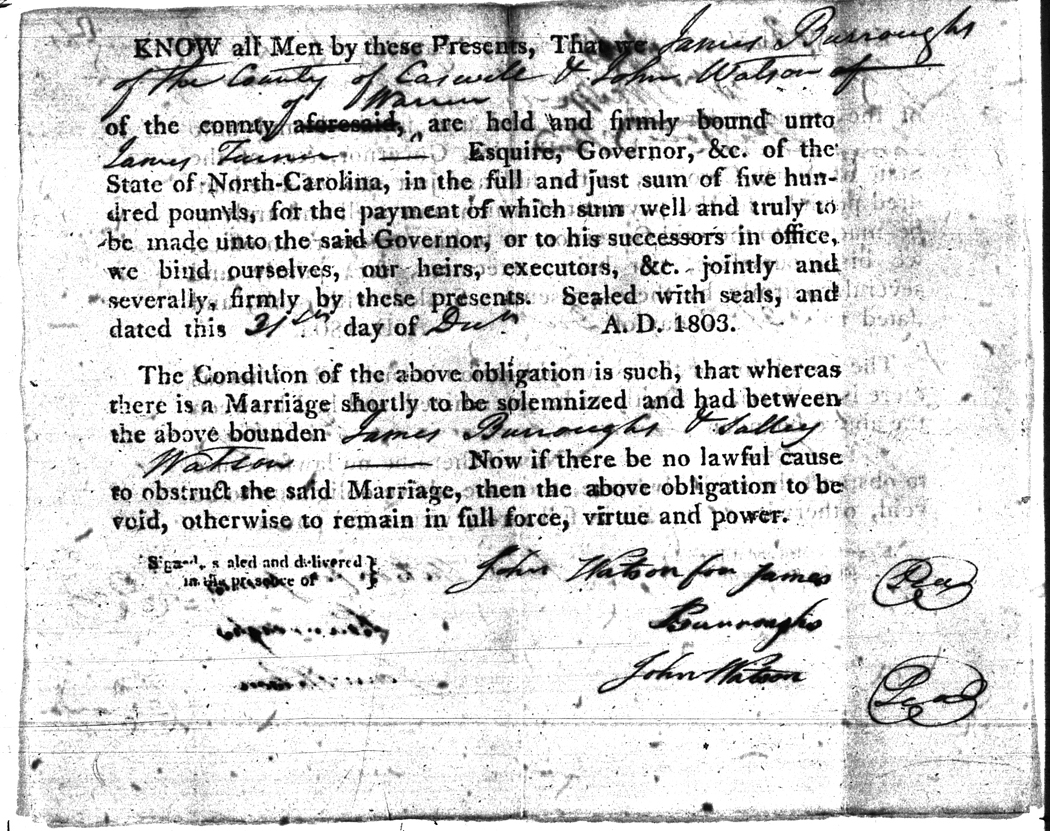 KNOW all Men by these Presents, That we James Burroughs
of the County of Caswell & John Watson of
of Warren
of the county aforesaid, are held and firmly bound unto
James Turner Esquire, Governor, &c. of the
State of North-Carolina, in the full and just sum of five hun-
dred pounds, for the payment of which sum well and truly to
be made unto the said Governor, or to his successors in office,
we bind ourselves, our heirs, executors, &c. jointly and
severally, firmly by these presents. Sealed with seals, and
dated this 31st day of A. D. 1803.
The Condition of the above obligation is such, that whereas
there is a Marriage shortly to be solemnized and had between
the above bounden James Burroughs & Salley
Watson Now if there be no lawful cause
to obstruct the said Marriage, then the above obligation to be
void, otherwise to remain in full force, virtue and power.
Signed, sealed and delivered
in the presence of
John Watson for James
Burroughs
John Watson